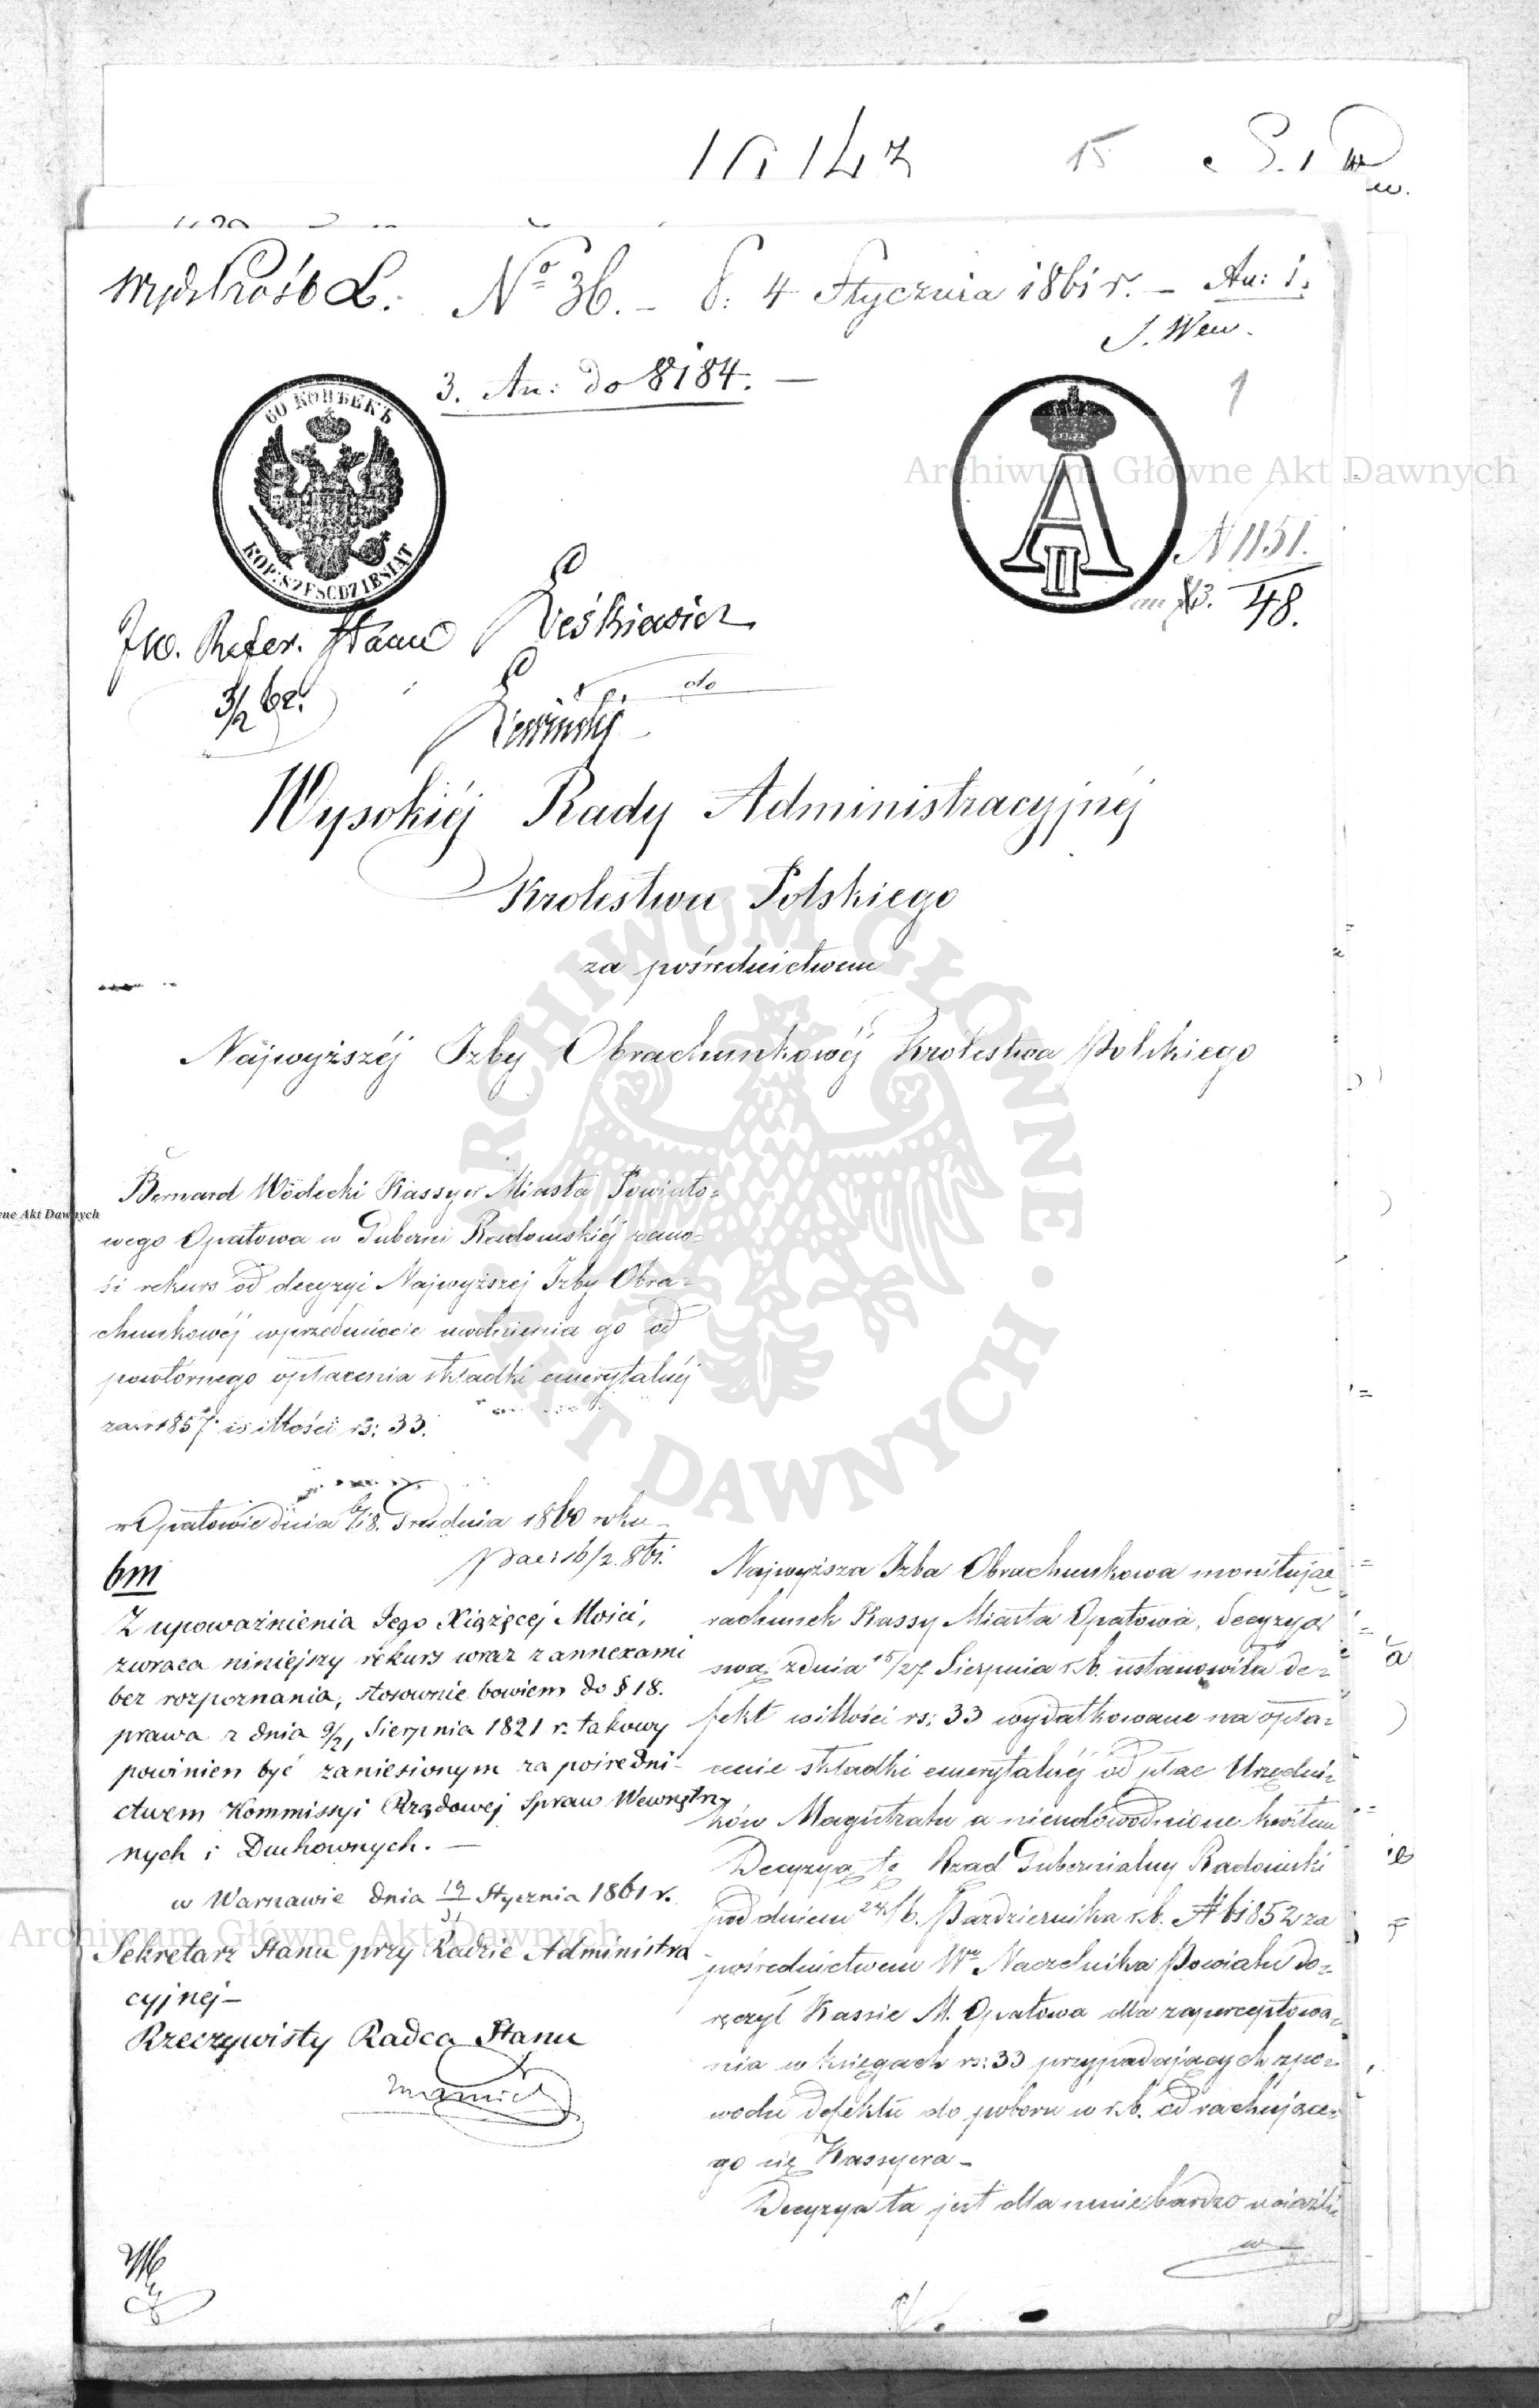 15
Nº 36. – d: 4 Stycznia 1861 r. – An: 1.
S. Wew.
3. An: do 8184. —
1
60 КОПѢЕКЪ
KOP: SZEŚĆDZIESIĄT
A II
N 1151.
48.
JW. Refer. Stanu
3/2 62.
do
Wysokiéj Rady Administracyjnéj
Krolestwa Polskiego
za pośrednictwem
Najwyższéj Izby Obrachunkowéj Krolestwa Polskiego
Bernard Wodecki Kassyer Miasta Powiato=
wego Opatowa w Gubernii Radomskiéj zano=
si rekurs od decyzyi Najwyższej Izby Obra=
chunkowéj w przedmiocie uwolnienia go od
powtórnego opłacenia składki emerytalnéj
za r. 1857 w illości rs: 33.
w Opatowie dnia 6/18. Grudnia 1860 roku
6m
Z upoważnienia Jego Xiążęcej Mości,
zwraca niniejszy rekurs wraz z annexami
bez rozpoznania, stosownie bowiem do § 18.
prawa z dnia 9/21 Sierpnia 1821 r. takowy
powinien być zaniesionym za pośredni-
ctwem Kommissyi Rządowej Spraw Wewnętrz-
nych i Duchownych. —
w Warszawie dnia 19/31 Stycznia 1861 r.
Sekretarz Stanu przy Radzie Administra
cyjnej —
Rzeczywisty Radca Stanu
Najwyższa Izba Obrachunkowa monitując
rachunek Kassy Miasta Opatowa, decyzyą
swą z dnia 15/27 Sierpnia r. b. ustanowiła de=
fekt w illości rs: 33 wydatkowane na opła=
cenie składki emerytalnéj od płac Urzędni=
ków Magistratu a nieudowodnione kwitem
Decyzyą tę Rząd Gubernialny Radomski
pod dniem 24/6. Października r. b. N 61852 za
pośrednictwem Wº Naczelnika Powiatu do=
ręczył Kassie M. Opatowa dla zaperceptowa=
nia w księgach rs: 33 przypadających z po=
wodu defektu do poboru w r. b. od rachujące=
go się Kassyera —
Decyzya ta jest dla mnie bardzo uciążli
wa
Archiwum Główne Akt Dawnych
ARCHIWUM GŁÓWNE · AKT DAWNYCH ·
Archiwum Główne Akt Dawnych